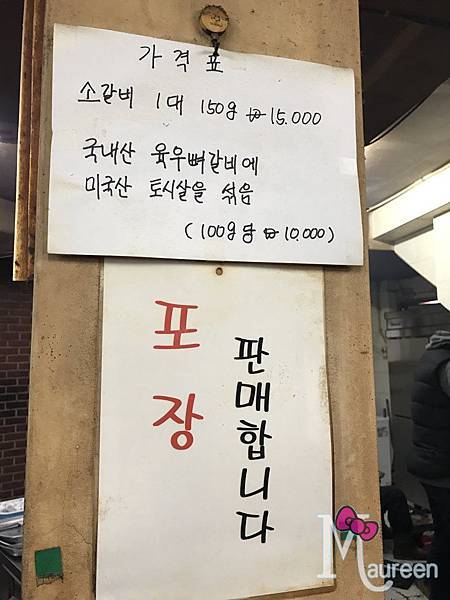 가격표
소갈비 1대 150g ₩15.000
국내산 육우뼈갈비에
미국산 토시살을 섞음
(100g당 ₩10.000)
포장
판매합니다
Maureen